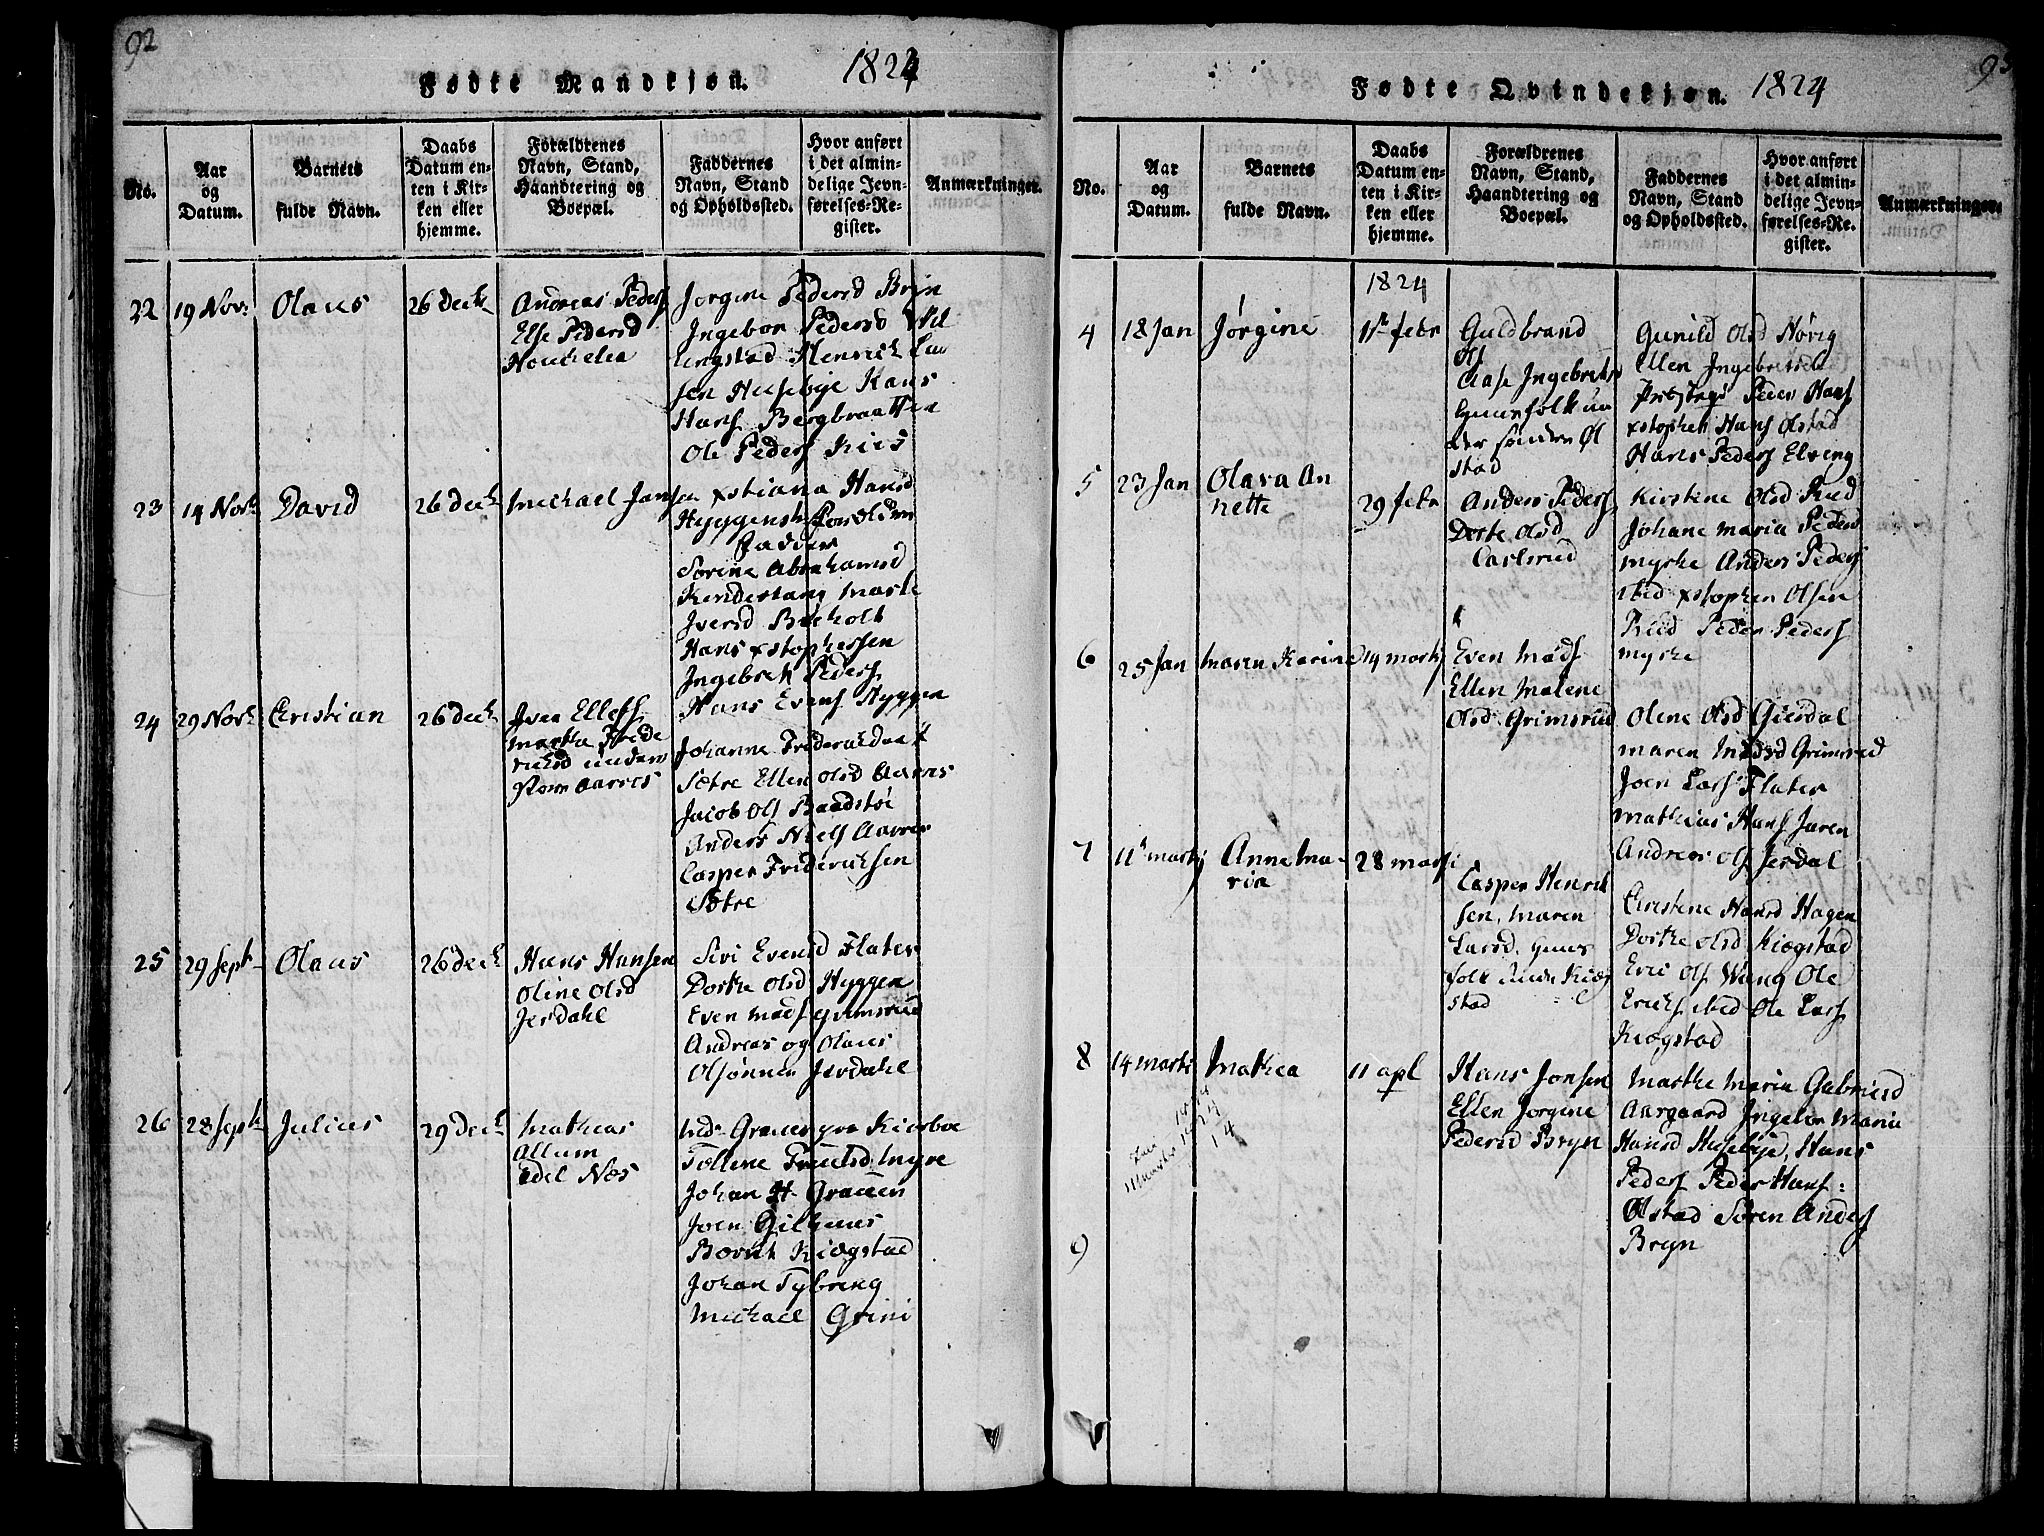 92
Fødte Mandkjøn. 1824
No.
Aar
og
Datum.
Barnets
fulde Navn.
Daabs
Datum en-
ten i Kir-
ken eller
hjemme.
Forældrenes
Navn, Stand,
Haandtering og
Boepæl.
Faddernes
Navn, Stand
og Opholdssted.
Hvor anført
i det almin-
delige Jevn-
førelses-Re-
gister.
Anmærkninger.
22 19 Nov: Olaus 26 Decb
Andreas Peders
Else Pedersd
Jorgine Pedersd Bryn
Ingebor Pedersd
Henrich Lar
sen Huseby Hans
Hans Bergbraatten
Ole Peders
23 14 Novb David 26 Decb
Michael Jansen
xstiana Hansd
Hyggen
Fadder
Sorine Abrahamsd
Marte
Iversd Bøcholt
Hans xstophersen
Ingebret Peders
Hans Evens Hyggen
24 29 Novb Christian 26 Decb
Iver Ellefs
Marthe Frede
richsd under
Aarres
Johanne Friderichsdaat
Sætre Ellen Olsd Aarres
Jacob Ols Baadstøe
Anders Niels Aarres
Casper Friderichsen
Sætre
25 29 Septb Olaus 26 Decb
Hans Hansen
Oline Olsd
Jerdahl
Siri Evensd Flater
Dorthe Olsd Hyggen
Even Mads Grimsrud
Andreas og Olaus
Olsønner Jerdahl
26 28 Septb Julius 29 Decb
Mathias
Allum
Edel Næs
Johan H Grauer
Joen Gilhuus
Kiøgstad
Johan Tybring
Michael Grini
93
Fødte Qvindekjøn. 1824
No.
Aar
og
Datum.
Barnets
fulde Navn.
Daabs
Datum en-
ten i Kir-
ken eller
hjemme.
Forældrenes
Navn, Stand,
Haandtering og
Boepæl.
Faddernes
Navn, Stand
og Opholdssted.
Hvor anført
i det almin-
delige Jevn-
førelses-Re-
gister.
Anmærkninger.
1824
4 18 Jan Jørgine 11te febr
Guldbrand
Ols
Aase Ingebretsd
Huusfolk un
der søndre Øl
stad
Gunild Olsd Høvig
Ellen Ingebretsd
Peder Hans
xstopher Hans Olstad
Hans Peders Elving
5 23 Jan Olava An
nette 29 febr
Anders Peders
Dorte Olsd
Carlsrud
Kirstine Olsd Rud
Johane Maria Pedersd
Myrhe Anders Peders
ibid xstopher Olsen
Rud Peder Peders
Myrhe
6 25 Jan Maren Karine 14 martj
Even Mads
Ellen Malene
Olsd Grimsrud
Olene Olsd Gierdal
Maren Madsd Grimsrud
Joen Lars Flater
Mathias Hans Jaren
Andreas Ols Jerdal
7 11te martj Anne Ma-
ria 28 martj
Casper Henrik
sen, Maren
Larsd. Huus
folk under Kiøg
stad
Christine Hansd Hagen
Dorthe Olsd Kiøgstad
Eric Ols Wang Ole
Erichs ibid Ole Lars
Kiøgstad
8 14 marti Mathea 11 apl
14
1824
14
Hans Jonsen
Ellen Jorgine
Pedersd Bryn
Marthe Maria Gabrielsd
Aargaard Ingebor Maria
Hansd Husebye, Hans
Peders Peder Hans:
Ølstad Søren Anders
Bryn
9